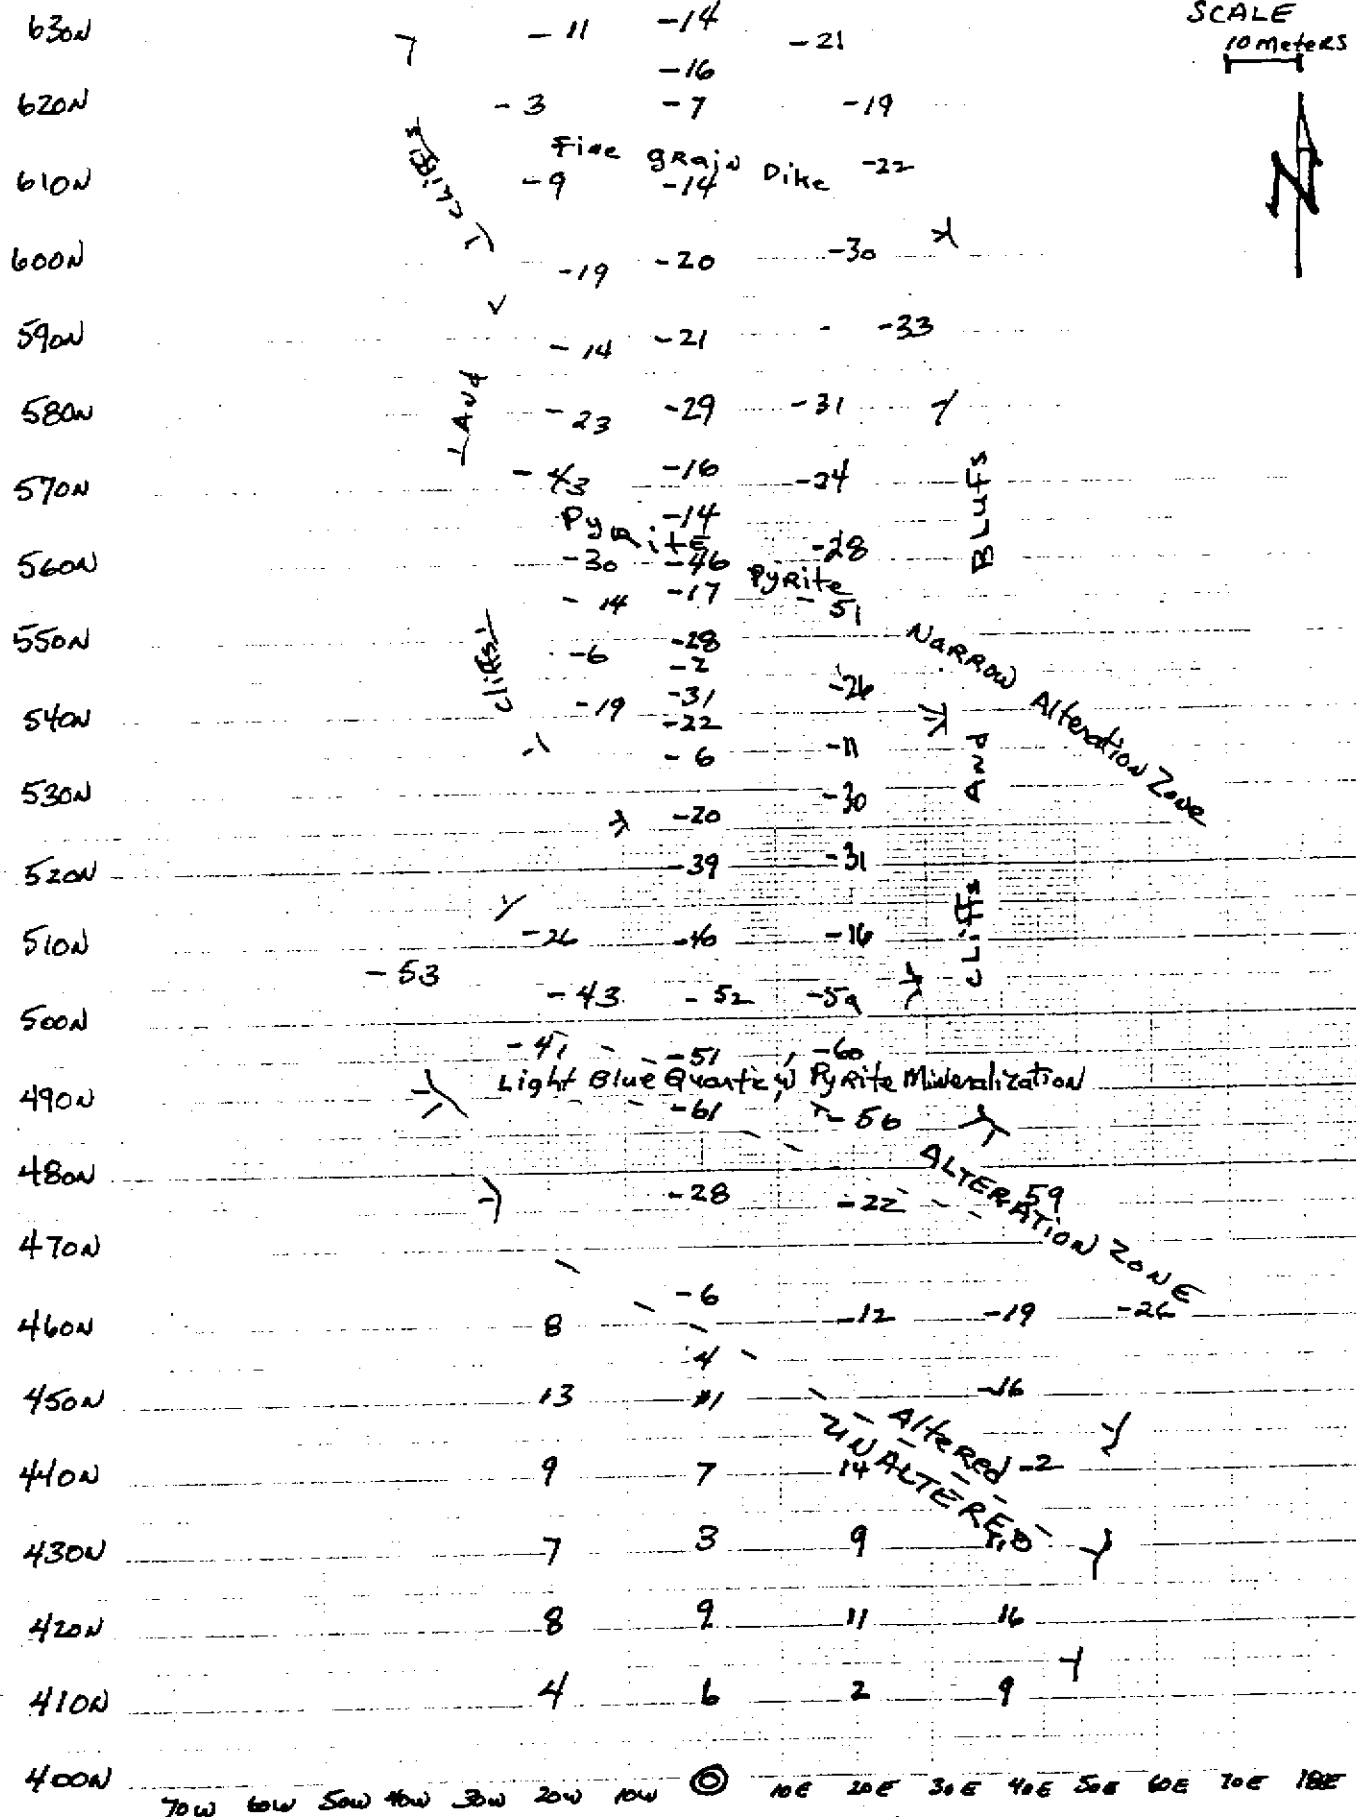 SCALE
10 meters
N
630N - 11 -14 -21
-16
620N - 3 - 7 -19
Fine grain Dike -22
610N -9 -14
cliffs
600N -19 -20 -30
590N - 14 -21 -33
And
580N - 23 -29 -31
570N - 43 -16 -24
Pyrite -14
BLUFFS
560N -30 -46 -28
Pyrite
- 14 -17 - 51
550N -6 -28
-2
Narrow Alteration Zone
cliffs
-31 -26
540N -19 -22
- 6 -11
And
530N -20 -30
520N -39 -31
cLiffs
510N -26 -46 -16
- 53
- 43 - 52 -59
500N
- 41 -51 -60
Light Blue Quartz w/ Pyrite Mineralization
490N -61 - 56
480N
ALTERATION ZONE
-28 -22 59
470N
-6
460N 8 -12 -19 -26
4
450N 13 11 -16
Altered
UNALTERED
440N 9 7 14 -2
430N 7 3 9
420N 8 9 11 16
410N 4 6 2 9
400N
70W 60W 50W 40W 30W 20W 10W 0 10E 20E 30E 40E 50E 60E 70E